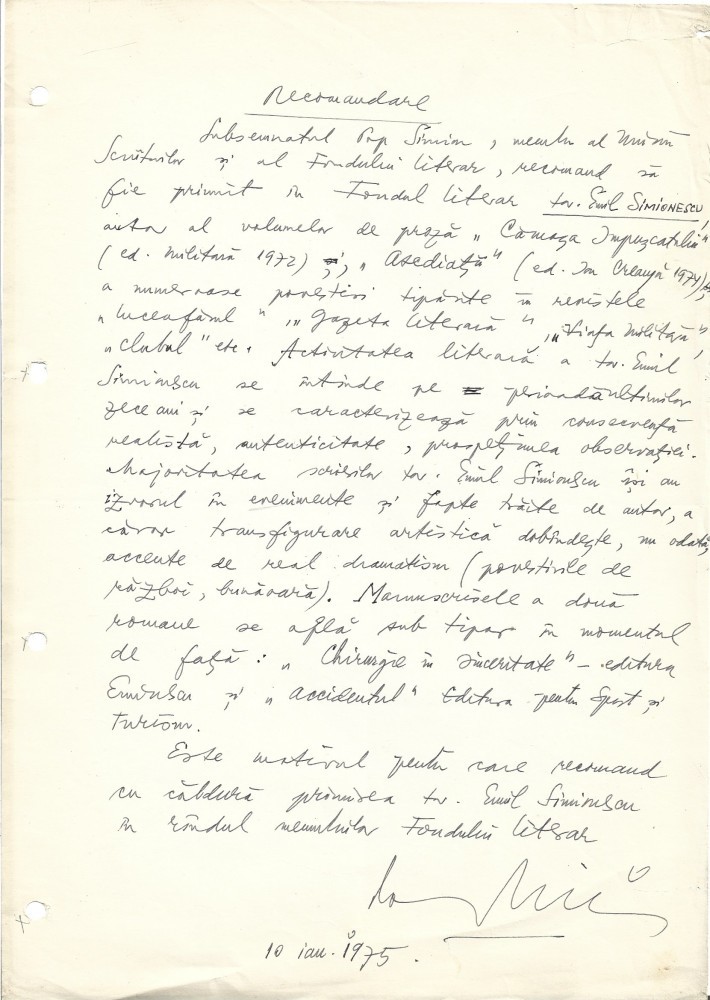 Recomandare
Subsemnatul Pop Simion, membru al Uniunii
Scriitorilor și al Fondului literar, recomand să
fie primit în Fondul literar tov. Emil SIMIONESCU,
autor al volumelor de proză „Cămașa Împușcatului"
(ed. Militară 1972) și, „Asediații" (ed. Ion Creangă 1974),
a numeroase povestiri tipărite în revistele
„Luceafărul", „Gazeta literară", „Viața Militară",
„Clubul" etc. Activitatea literară a tov. Emil
Simionescu se întinde pe perioada ultimilor
zece ani și se caracterizează prin consecvență
realistă, autenticitate, prospețimea observației.
Majoritatea scrierilor tov. Emil Simionescu își au
izvorul în evenimente și fapte trăite de autor, a
căror transfigurare artistică dobîndește, nu odată,
accente de real dramatism (povestirile de
război, bunăoară). Manuscrisele a două
romane se află sub tipar în momentul
de față: „Chirurgie în sinceritate" – editura
Eminescu și „Accidentul" Editura pentru Sport și
Turism.
Este motivul pentru care recomand
cu căldură primirea tov. Emil Simionescu
în rîndul membrilor Fondului literar
10 ian. 1975.